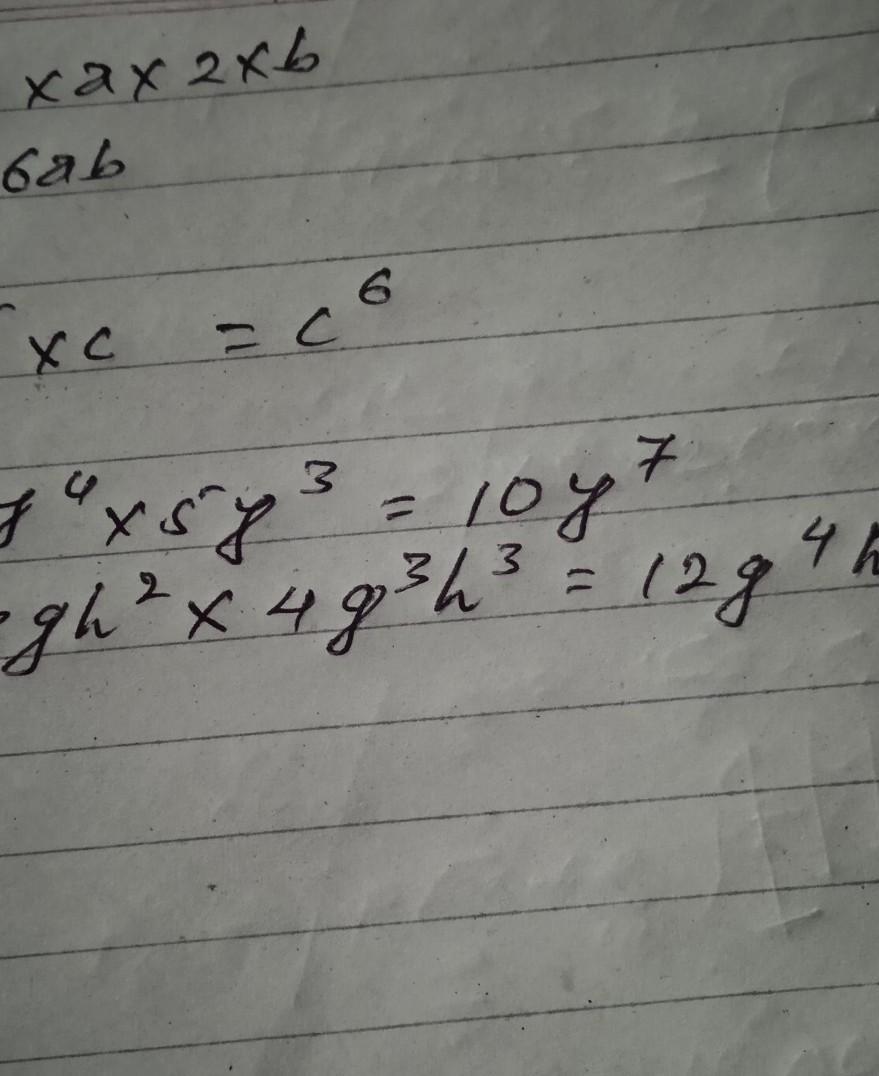 xax2xb
6ab
xc = c⁶
y⁴x5y³ = 10y⁷
gh²x4g³h³ = 12g⁴h